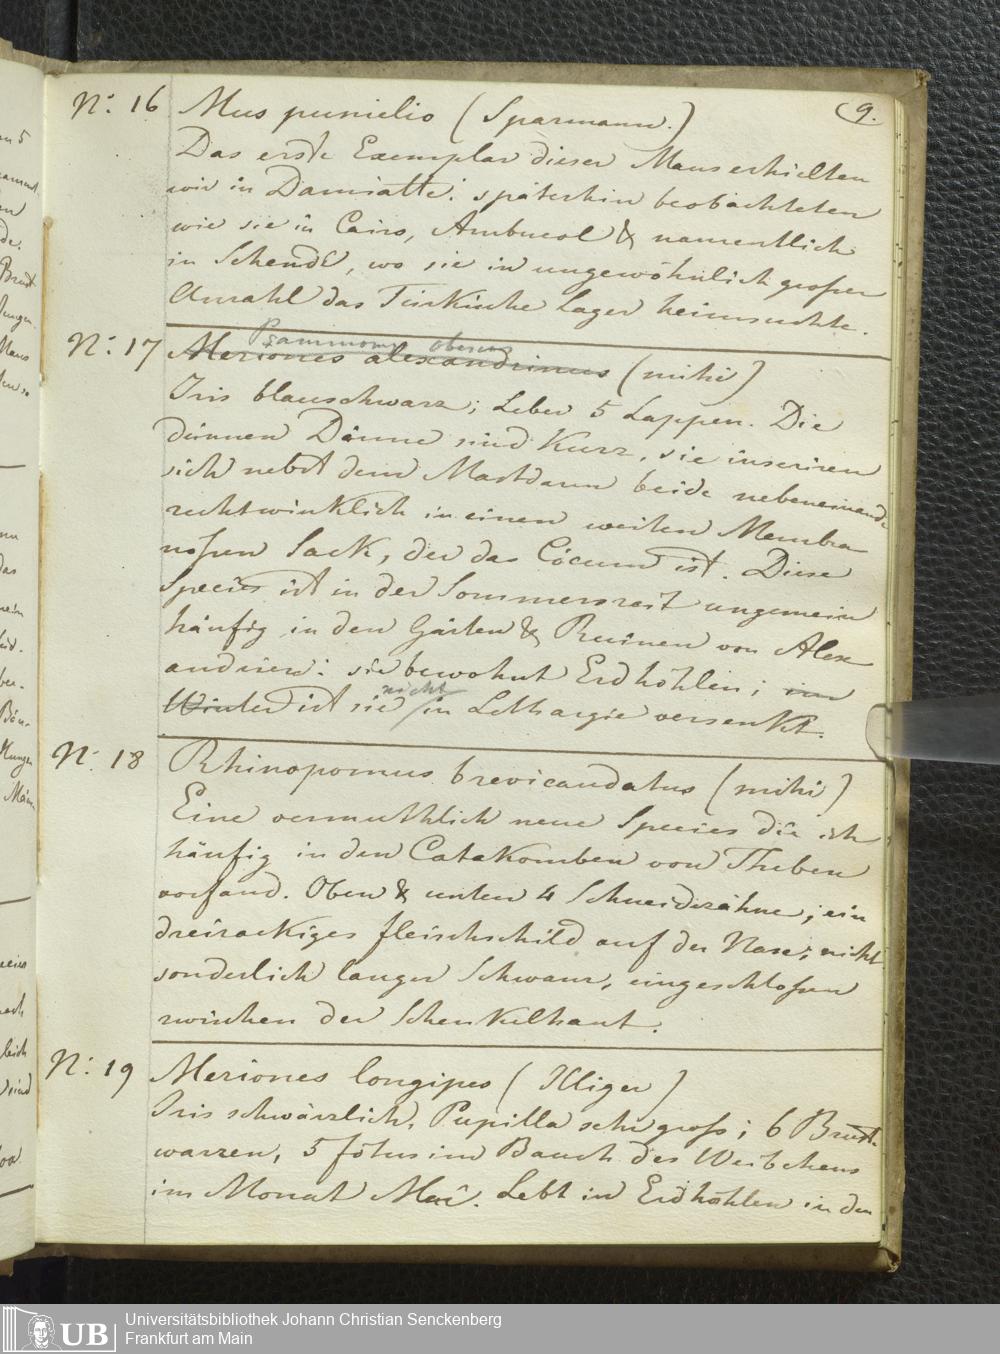 9.
N: 16 Mus pumilio (Sparmann.)
Das erste Exemplar dieser Maus erhielten
wir in Damiatte: späterhin beobachteten
wir sie in Cairo, Ambucol & namentlich
in Schendi, wo sie in ungewöhnlich großer
Anzahl das Türkische Lager heimsuchte.
Psammomys obesus
N: 17 Meriones alexandrinus (mihi)
Iris blauschwarz; Leber 5 Lappen. Die
dünnen Därme sind kurz, sie inseriren
sich nebst dem Mastdarm beide nebeneinander
rechtwinklich in einen weiten Membra
nosen Sack, der das Cöcum ist. Diese
Species ist in der Sommerszeit ungemein
häufig in den Gärten & Ruinen von Alex
andrien: sie bewohnt Erdhöhlen; im
nicht
Winter ist sie in Lethargie versenkt.
N: 18 Rhinopomus brevicaudatus (mihi)
Eine vermuthlich neue Species die ich
häufig in den Catakomben von Theben
vorfand. Oben & unten 4 Schneidezähne; ein
dreizackiges Fleischschild auf der Nase; nicht
sonderlich langer Schwanz, eingeschloßen
zwischen der Schenkelhaut.
N: 19 Meriones longipes (Illiger)
Iris schwärzlich, Pupilla sehr groß; 6 Brust
warzen, 5 fötus im Bauch des Weibchens
im Monat Mai. Lebt in Erdhöhlen in den
UB
Universitätsbibliothek Johann Christian Senckenberg
Frankfurt am Main